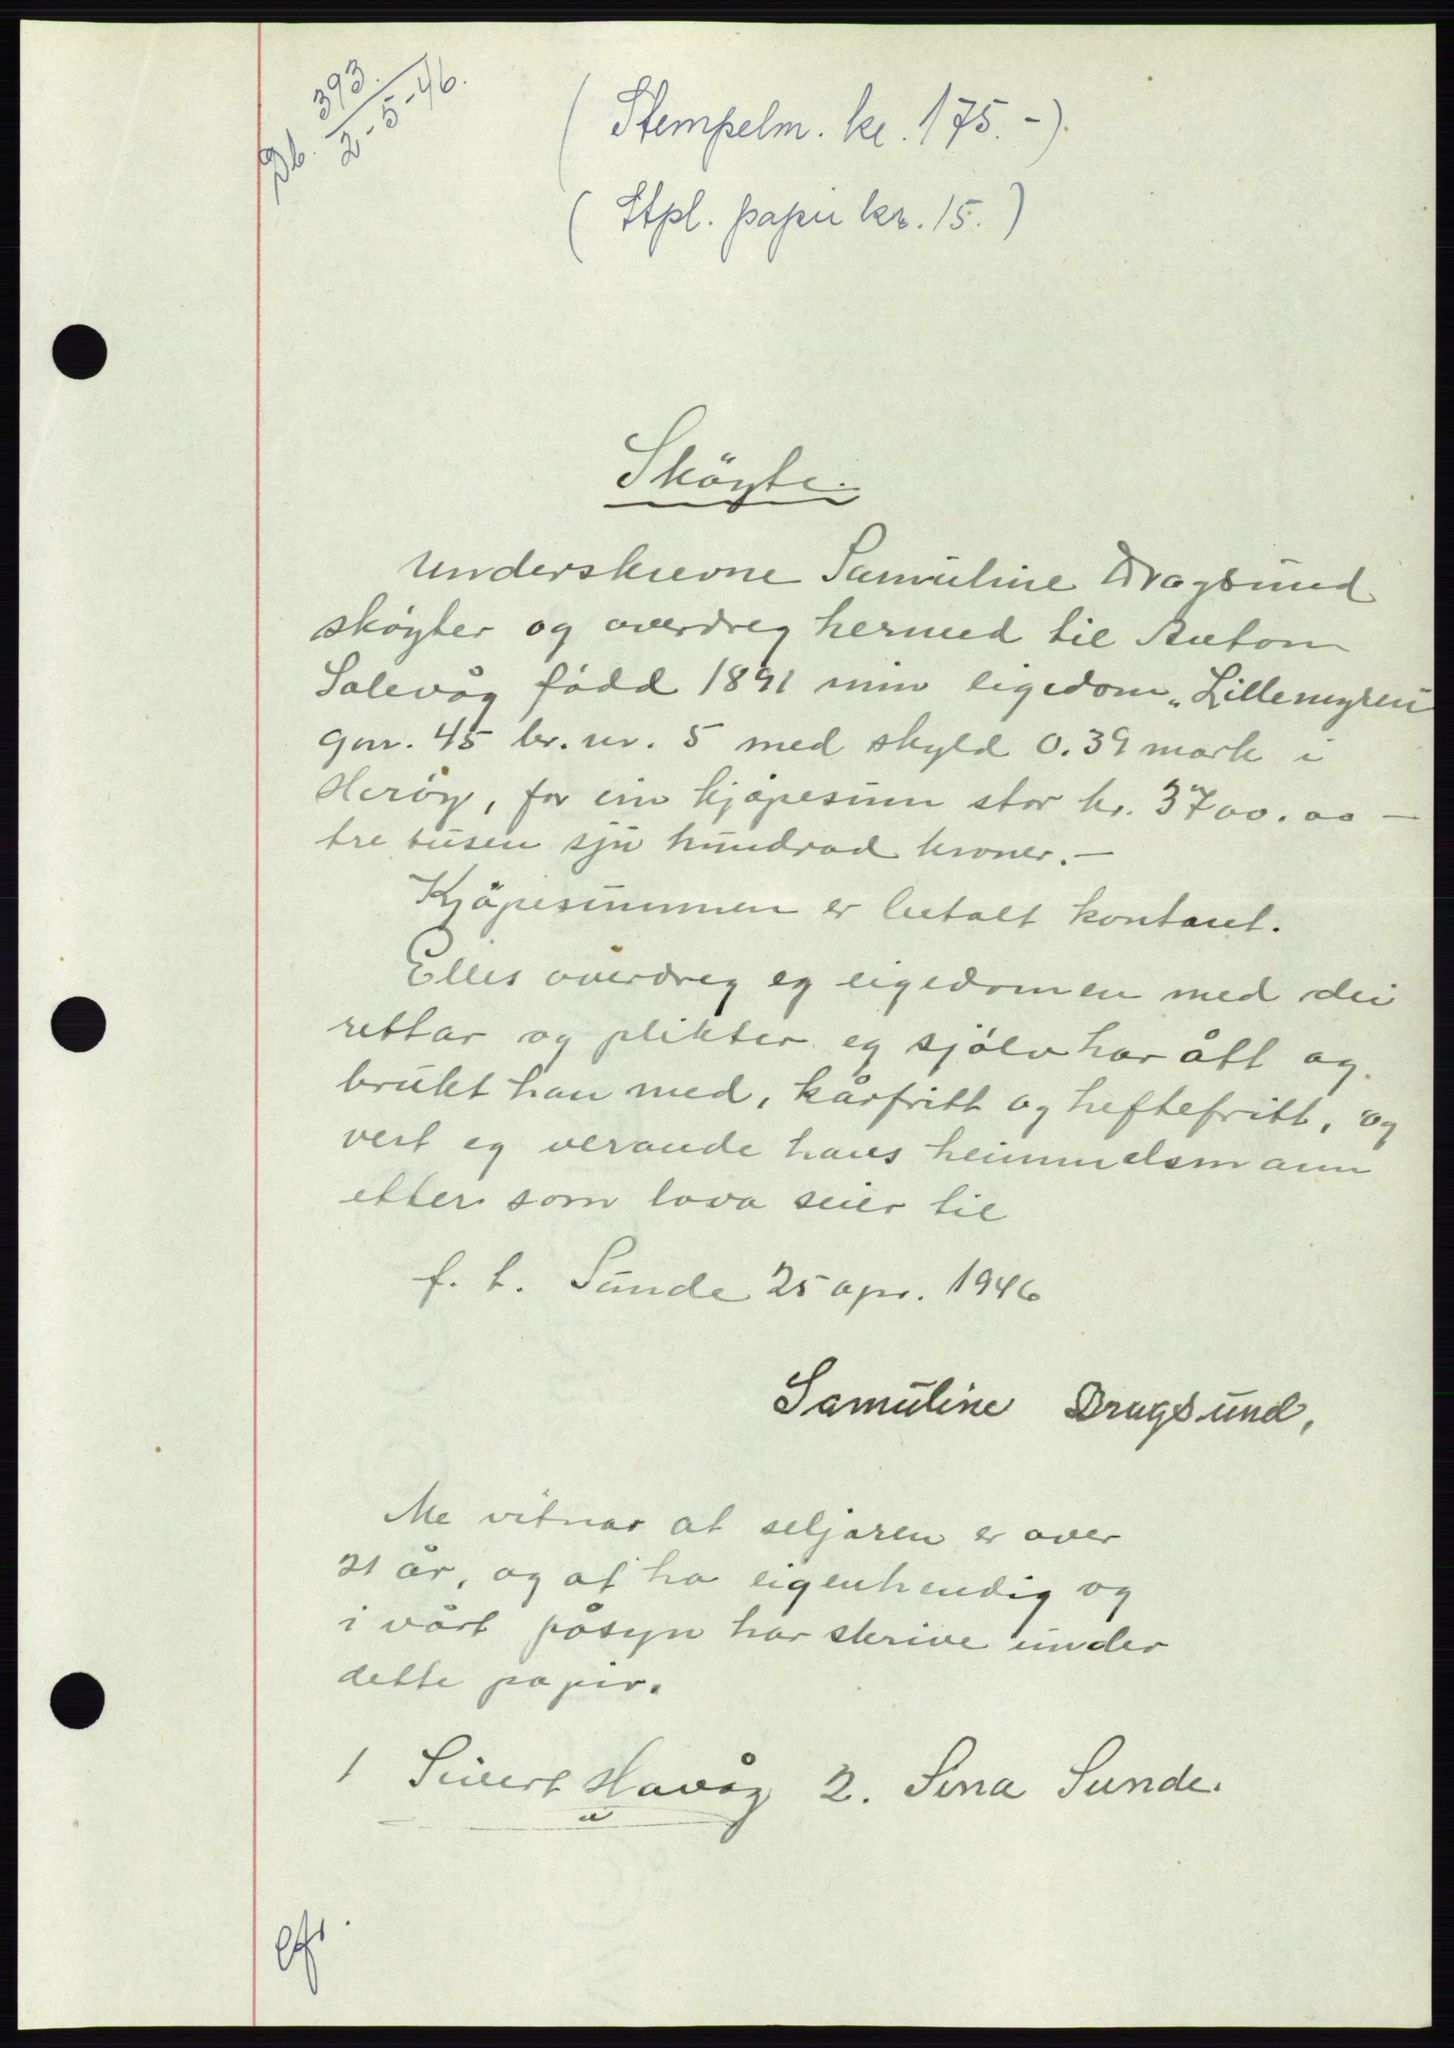 Db. 393.
2-5-46.
(Stempelm. kr. 175.-).
(Stpl. papir kr. 15.)
Sköyte.
Underskrevne Samuline Dragsund
sköyter og overdreg hermed til Anton
Salevåg född 1891 min eigedom „Lillemyren"
gnr. 45 br. nr. 5 med skyld 0.39 mark i
Heröy, for ein kjöpesum stor kr. 3700.00 —
tre tusen sju hundrad kroner.—
Kjöpesummen er betalt kontant.
Elles overdreg eg eigedomen med dei
rettar og plikter eg sjölv har ått og
brukt han med, kårfritt og heftefritt, og
vert eg verande hans heimmelsmann
etter som lova seier til
f. t. Sunde 25 apr. 1946
Samuline Dragsund,
Me vitnar at seljaren er over
21 år, og at ho eigenhendig og
i vårt påsyn har skrive under
dette papir.
1 Sivert Havåg 2. Sina Sunde.